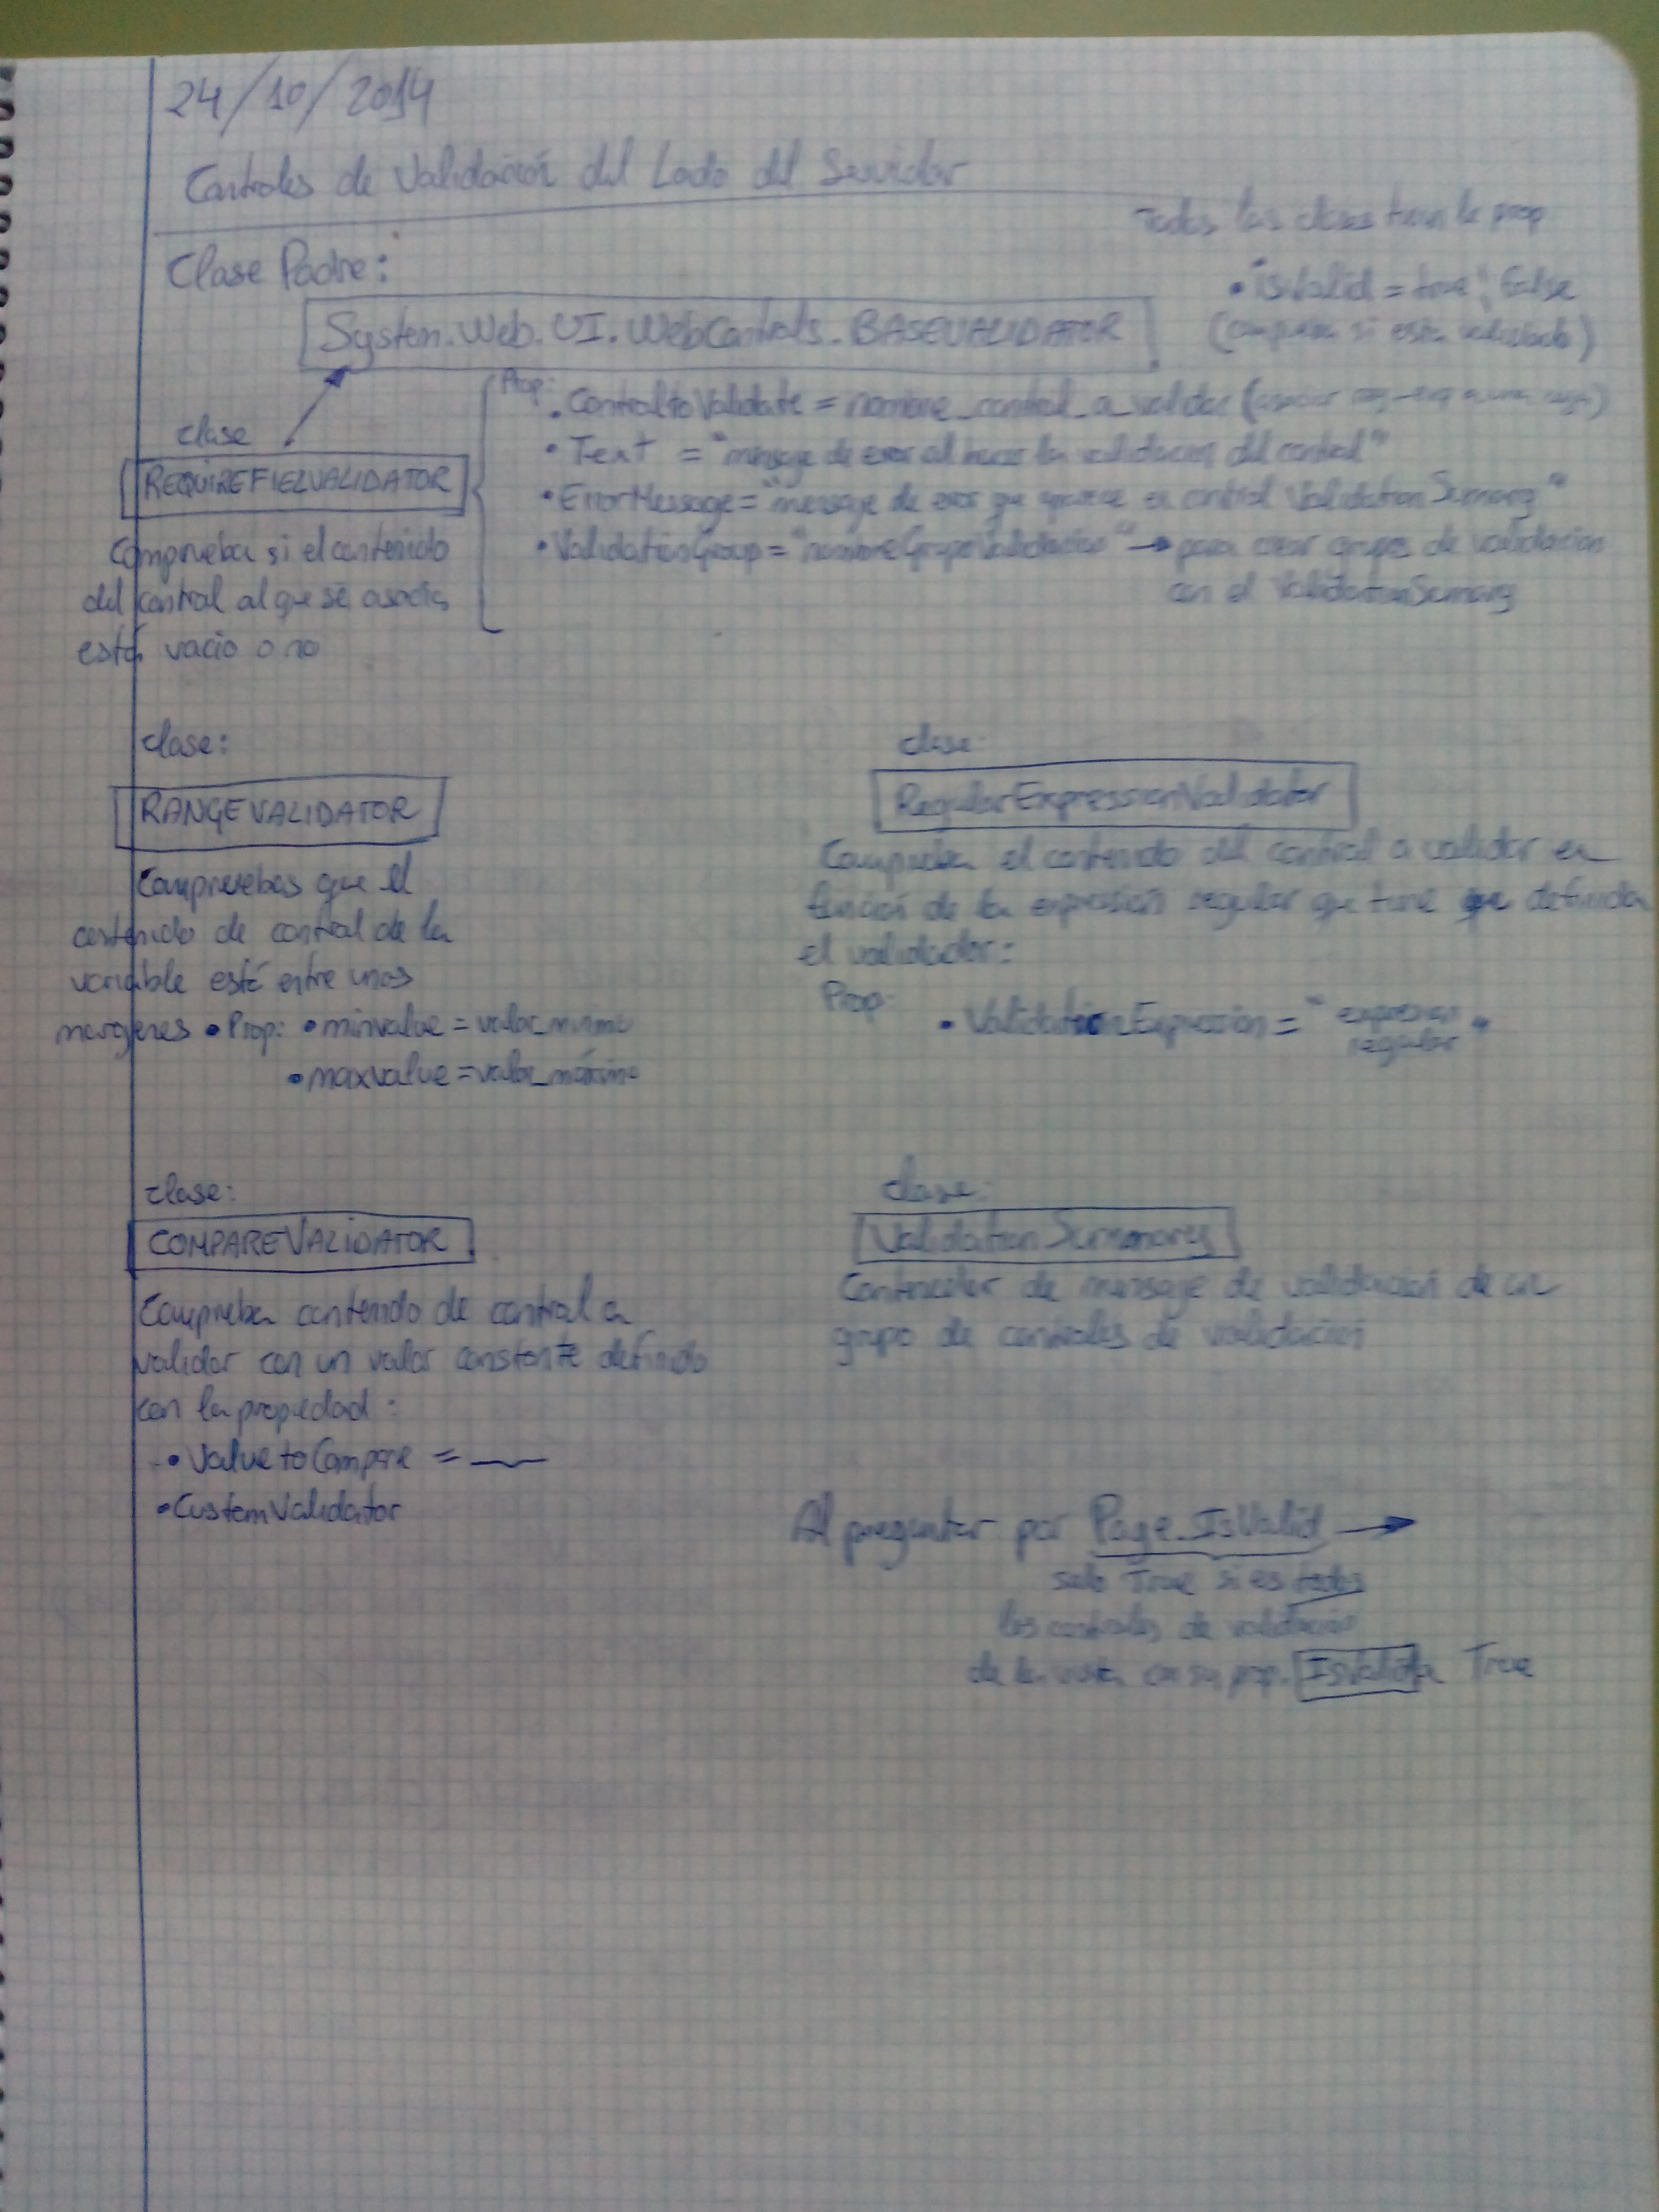 24/10/2014
Controles de Validación del Lado del Servidor
Todas las clases tienen la prop
• isValid = true, false
(comprueba si esta validado)
Clase Padre:
System.Web.UI.WebControls.BASEVALIDATOR
Prop:
• ControltoValidate = nombre_control_a_validar (asociar
• Text = "mensaje de error al hacer la validacion del control"
• ErrorMessage = "mensaje de error que aparece en control ValidationSumary"
• ValidationGroup = "nombreGrupoValidacion" → para crear grupos de validacion
con el ValidationSumary
clase
REQUIREFIELVALIDATOR
Comprueba si el contenido
del control al que se asocia,
está vacio o no
clase:
RANGEVALIDATOR
Compruebas que el
contenido de control de la
variable esté entre unos
margenes • Prop: • minvalue = valor_minimo
• maxvalue = valor_máximo
clase:
RegularExpressionValidator
Comprueba el contenido del control a validar en
función de la expresión regular que tiene que definida
el validador:
Prop:
• ValidationExpression = "expresion
regular"
clase:
COMPAREVALIDATOR
Comprueba contenido de control a
validar con un valor constante definido
con la propiedad:
• ValuetoCompare = ___
• CustomValidator
clase:
ValidationSummary
Contenedor de mensaje de validación de un
grupo de controles de validacion
Al preguntar por Page_IsValid →
solo True si es todos
los controles de validacion
de la vista con su prop. IsValid a True